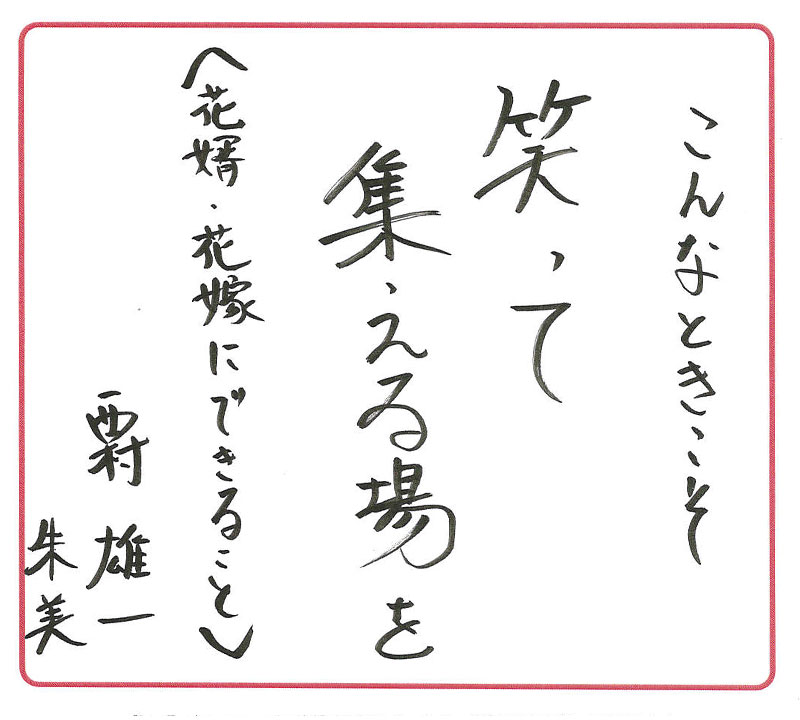 こんなときこそ
笑って
集える場を
〈花婿・花嫁にできること〉
西村 雄一
朱美